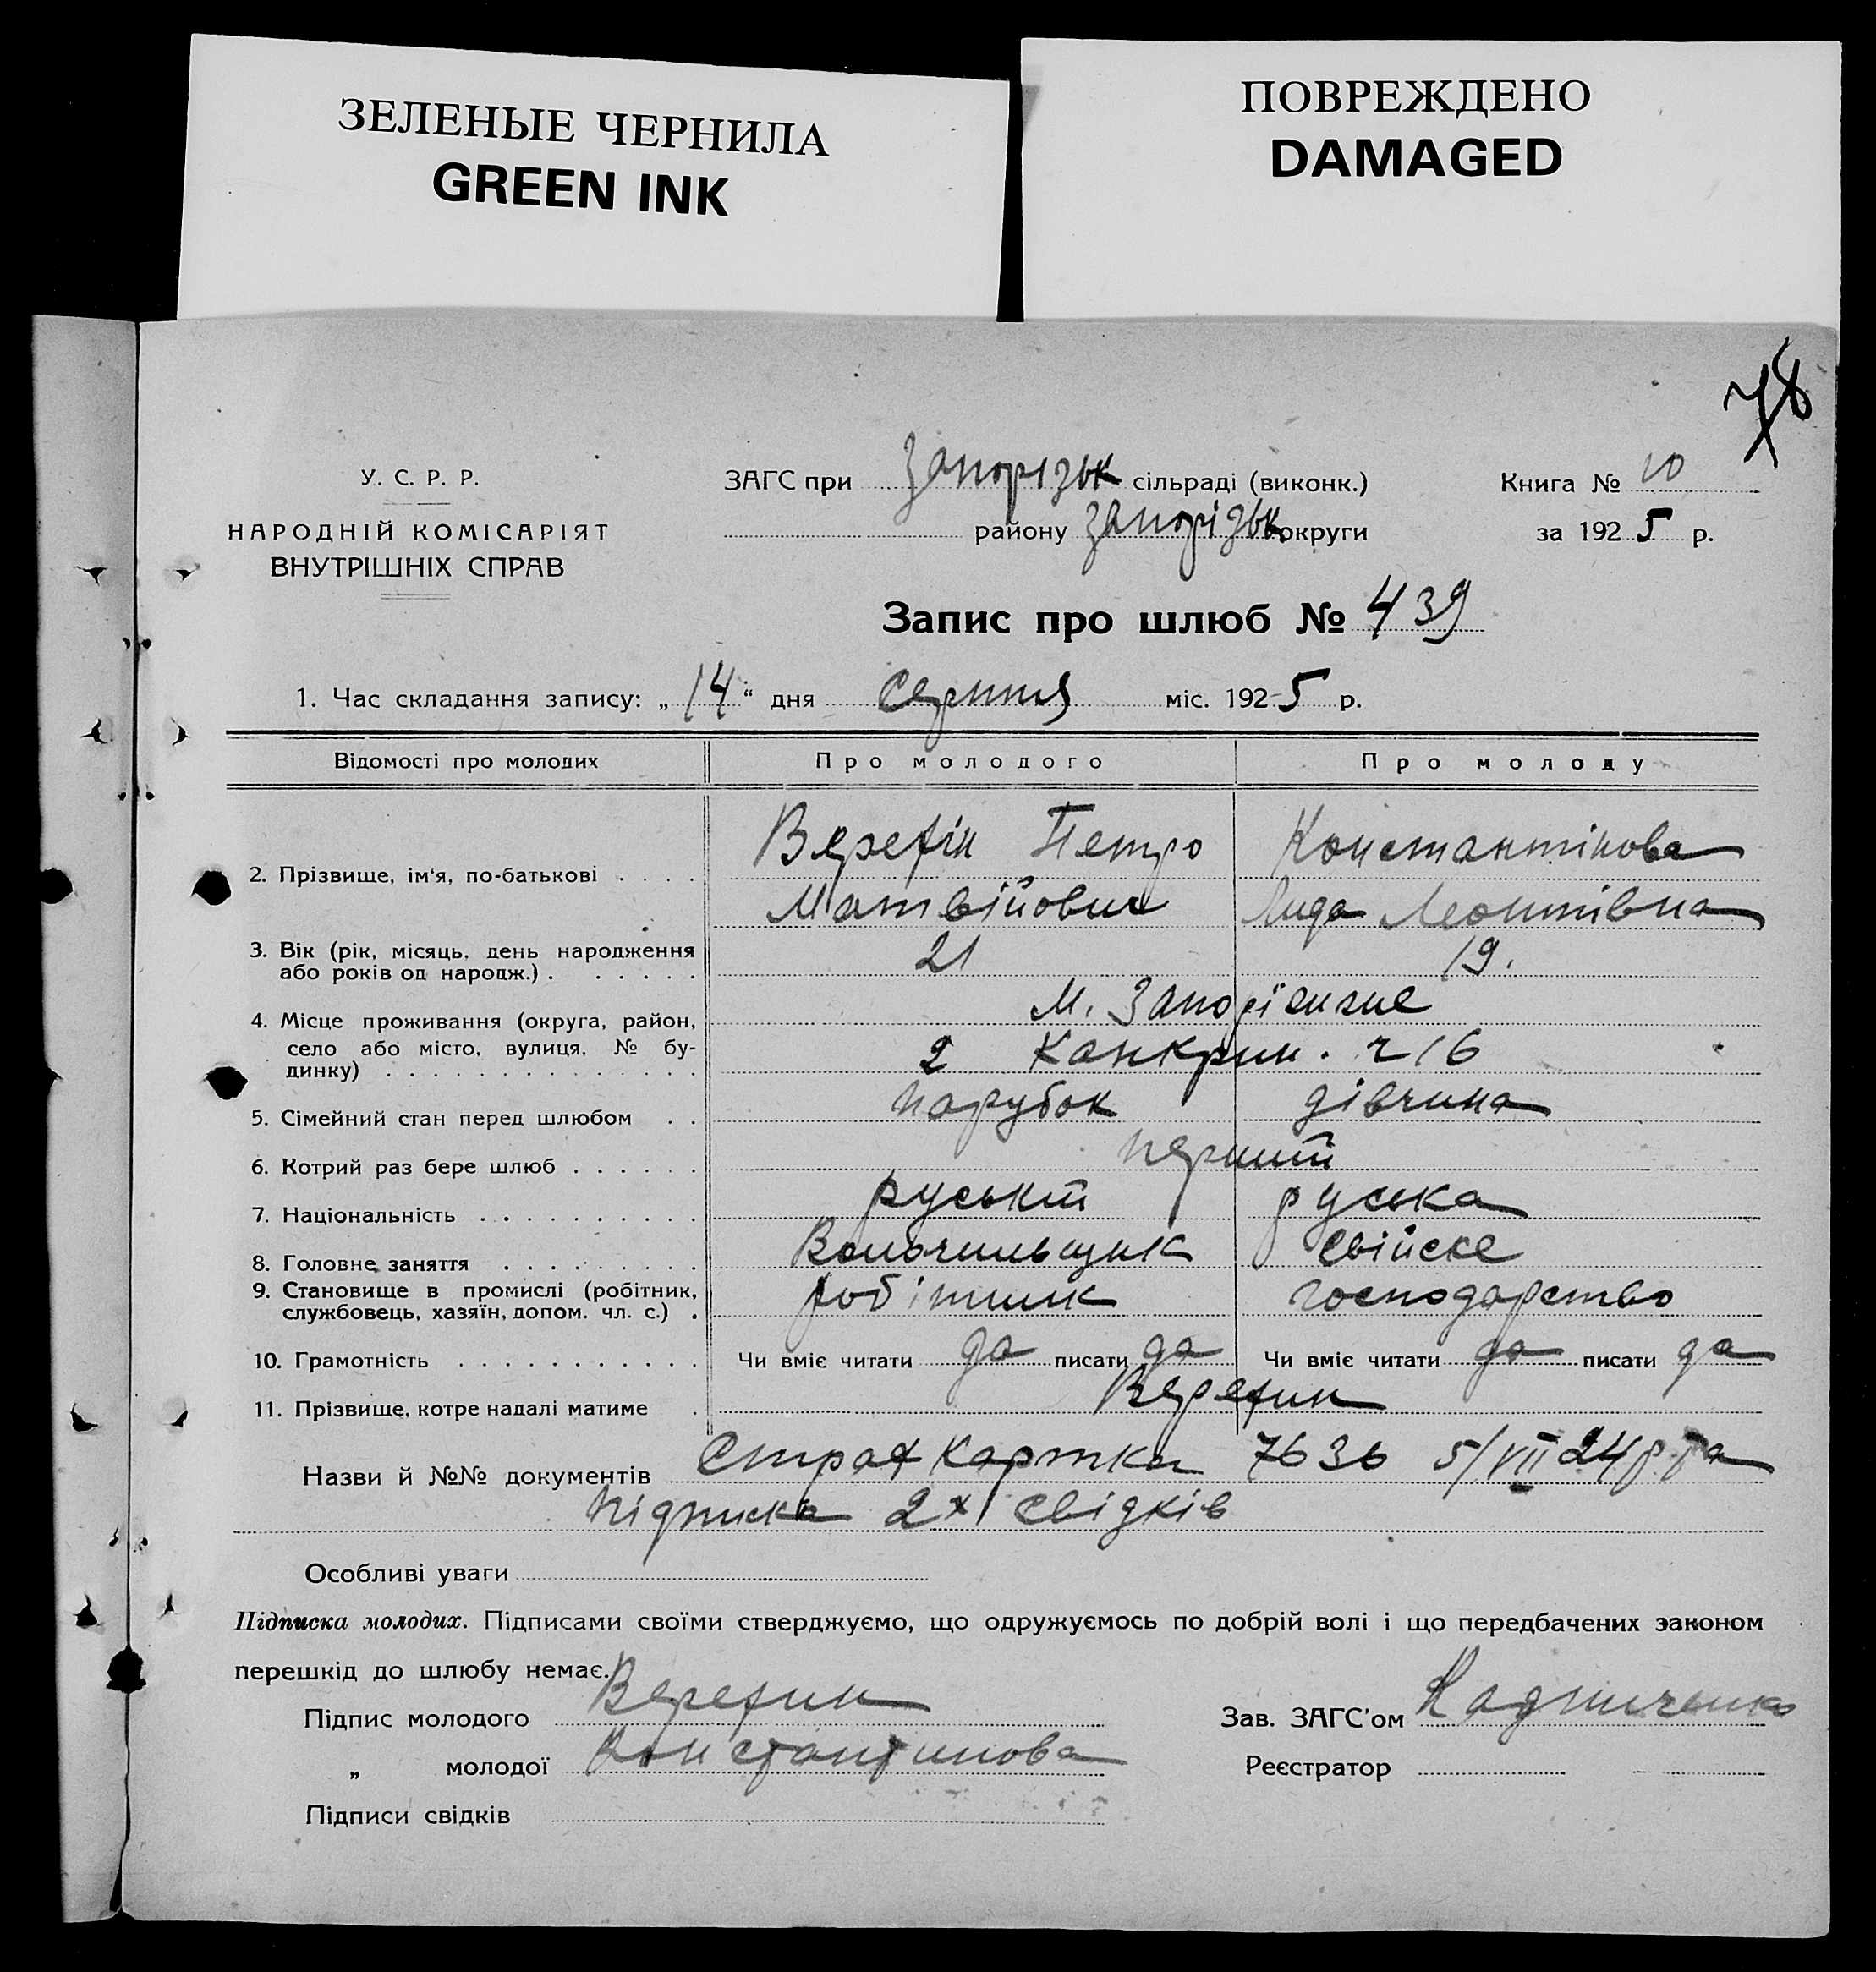 ЗЕЛЕНЫЕ ЧЕРНИЛА
GREEN INK
ПОВРЕЖДЕНО
DAMAGED
78
У. С. Р. Р.
НАРОДНІЙ КОМІСАРІЯТ
ВНУТРІШНІХ СПРАВ
ЗАГС при Запорізьк сільраді (виконк.)
району Запорізьк округи
Книга № 10
за 1925 р.
Запис про шлюб № 439
1. Час складання запису: „14“ дня серпня міс. 1925 р.
Відомості про молодих Про молодого Про молоду
2. Прізвище, ім'я, по-батькові . . . . Петро Константінова
Матвійович Лида Леонтівна
3. Вік (рік, місяць, день народження 21 19.
або років од народж.) . . . . . .
4. Місце проживання (округа, район, М.
село або місто, вулиця, № бу- 2 Канкрин. 16
динку) . . . . . . . . . . . . . .
5. Сімейний стан перед шлюбом . . парубок дівчина
6. Котрий раз бере шлюб . . . . . . перший
7. Національність . . . . . . . . . . руський руська
8. Головне заняття . . . . . . . . . Волочильщик свійске
9. Становище в промислі (робітник, робітник господарство
службовець, хазяїн, допом. чл. с.) .
10. Грамотність . . . . . . . . . . . Чи вміє читати да писати да Чи вміє читати да писати да
11. Прізвище, котре надалі матиме .
Назви й №№ документів Страх картка 7636 5/VII 24р. та
підписка 2х свідків
Особливі уваги
Підписка молодих. Підписами своїми стверджуємо, що одружуємось по добрій волі і що передбачених законом
перешкід до шлюбу немає.
Підпис молодого
Зав. ЗАГС'ом
„ молодої Константинова
Реєстратор
Підписи свідків